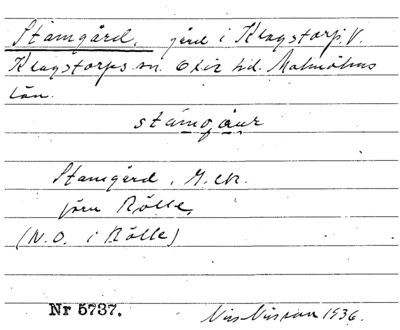 Stamgård, gård i Klagstorp, V.
Klagstorps sn. Oxie hd. Malmöhus
län.
stamgaur
Stamgård, G.ek.
jörn Rölle,
(N.O. i Rölle)
Nr 5737.
Nils Nilsson 1936.